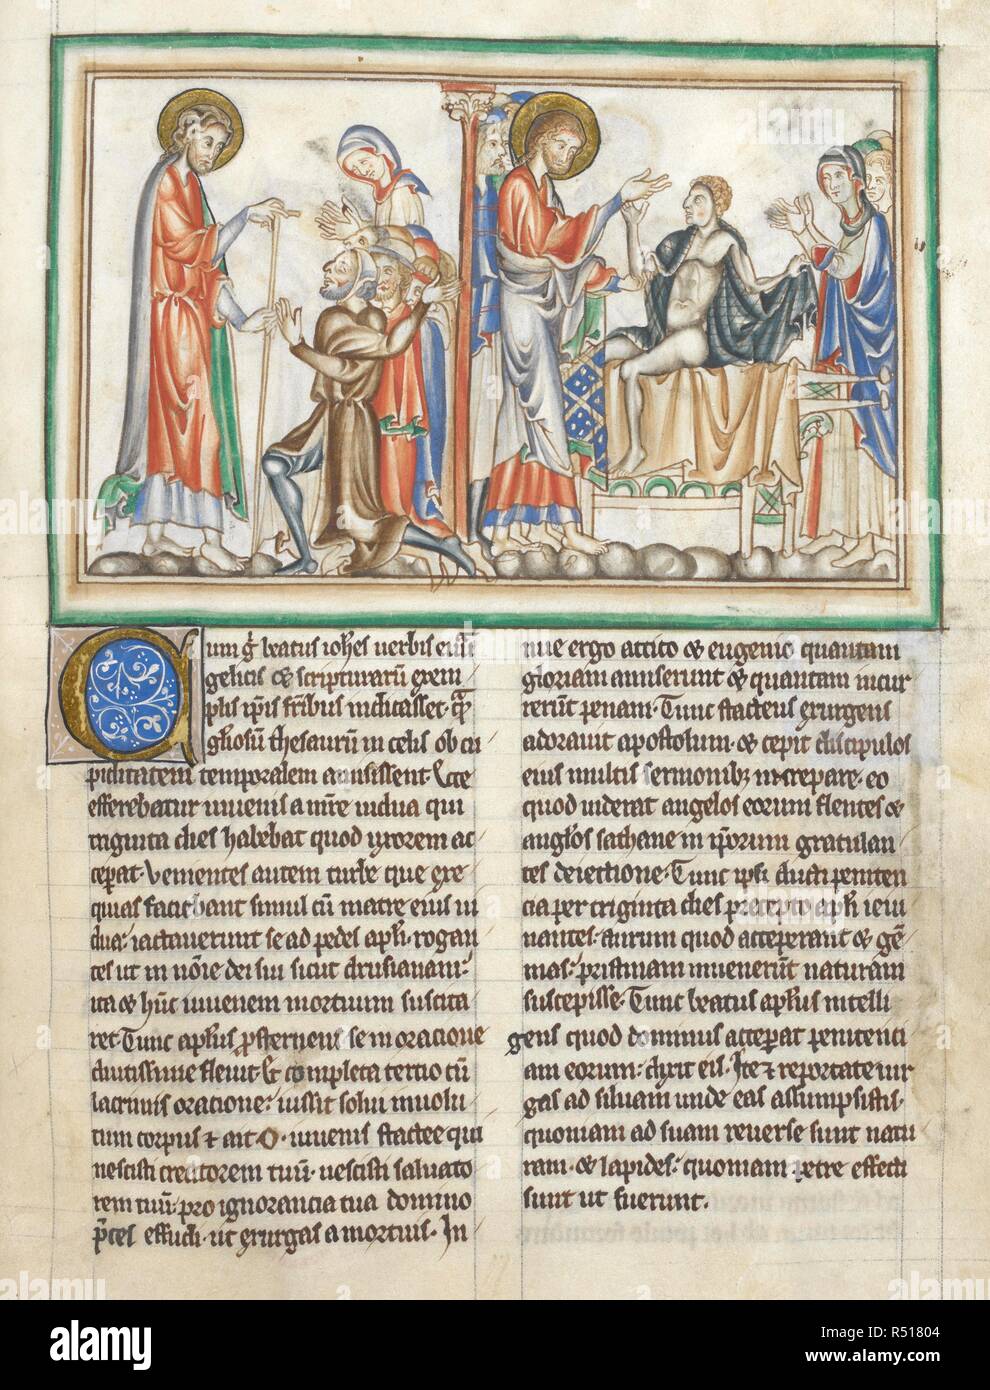 Cum g̃ beatus ioħes uerbis euñ
gelicis ⁊ scripturarũ exem
plis ip̃is fr̃ibus indicasset· q̃
gl̃iosũ thesaurũ in celis ob cu
piditatem temporalem amisissent· Ecce
efferebatur iuuenis a mr̃e uidua qui
triginta dies habebat quod uxorem ac
ceperat· Venientes autem turbe que exe
quias faciebant simul cũ matre eius ui
dua: iactauerunt se ad pedes ap̃li· rogan
tes ut in nõie dei sui sicut drusianam:
ita ⁊ hũc iuuenem mortuum suscita
ret· Tunc ap̃lus ꝓsternens se in oratione
diutissime fleuit· Et completa tercio cũ
lacrimis oratione: iussit solui inuolu
tum corpus ⁊ ait· O· iuuenis stactee qui
nescisti creatorem tuũ· nescisti saluato
rem tuũ: pro ignorancia tua domino
p̃ces effudi· ut exurgas a mortuis· In
nue ergo attico ⁊ eugenio quantam
gloriam amiserunt ⁊ quantam incur
rerũt penam· Tunc stacteus exurgens
adorauit apostolum· ⁊ cepit discipulos
eius multis sermonibꝫ increpare· eo
quod uiderat angelos eorum flentes ⁊
angl̃os sathane in ip̃orum gratulan
tes deiectione· Tunc ip̃i ducti peniten
cia per triginta dies precepto ap̃li ieiu
nantes· aurum quod acceperant ⁊ gẽ
mas: pristinam inuenerũt naturam
suscepisse· Tunc beatus ap̃lus intelli
gens quod dominus acceperat penitenci
am eorum: dixit eis· Ite ⁊ reportate uir
gas ad siluam unde eas assumpsistis·
quoniam ad suam reuerse sunt natu
ram· ⁊ lapides: quoniam petre effecti
sunt ut fuerunt.
alamy
Image ID: R51804
www.alamy.com